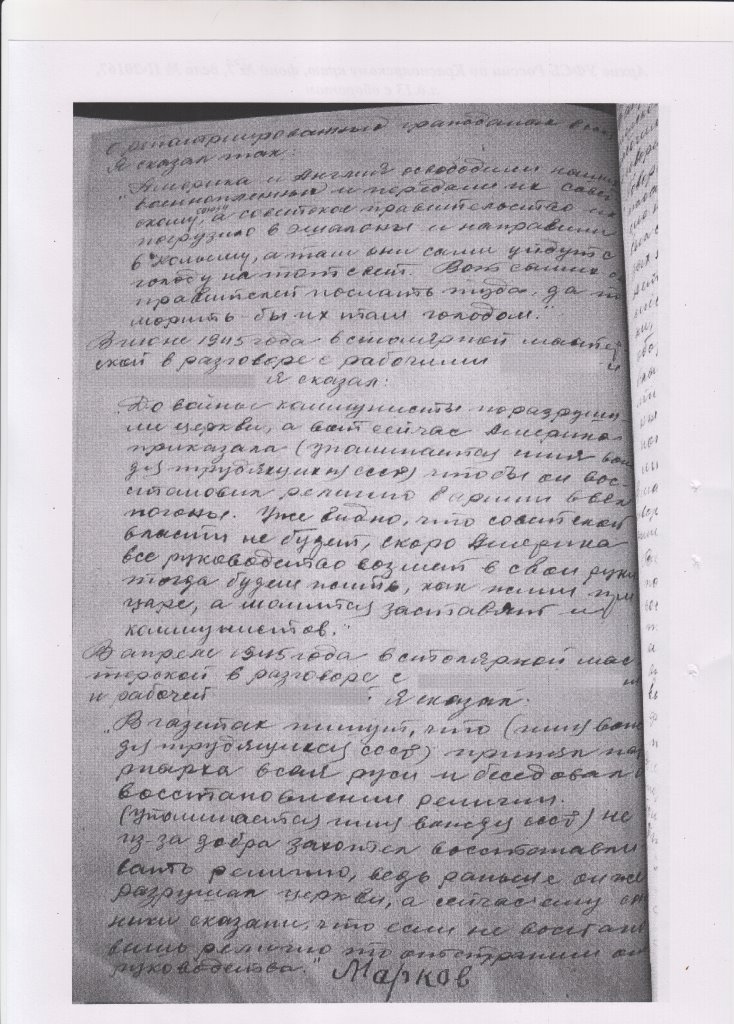 о репатриированных гражданах
Я сказал так:
"Америка и Англия освободили наших
военнопленных и передали их совет-
скому союзу, а советское правительство их
погрузило в эшалоны и направили
в Колыму, а там они сами уйдут с
голоду на тот свет. Вот самих
правителей послать туда, да по
морить-бы их там голодом."
В июне 1945 года в столярной мастер
ской в разговоре с рабочими и
Я сказал:
"До войны коммунисты поразруши
ли церкви, а вот сейчас Америка
приказала (упоминается имя вож
дя трудящихся ссср) чтобы он вос
становил религию в армии ввел
погоны. Уже видно, что советской
власти не будет, скоро Америка
все руководство возмет в свои руки
тогда будем жить, как жили при
царе, а молится заставят и
коммунистов."
В апреле 1945 года в столярной мас
терской в разговоре с
и рабочей Я сказал:
"В газетах пишут, что (имя вож
дя трудящихся ссср) принял пат
риарха всея руси и беседовал о
восстановлении религии.
(упоминается имя вождя ссср) не
из-за добра захотел восстанавли
вать религию, ведь раньше он же
разрушал церкви, а сейчас ему
сказали, что если не восстано
вишь религию то отстраним от
руководства."
Марков